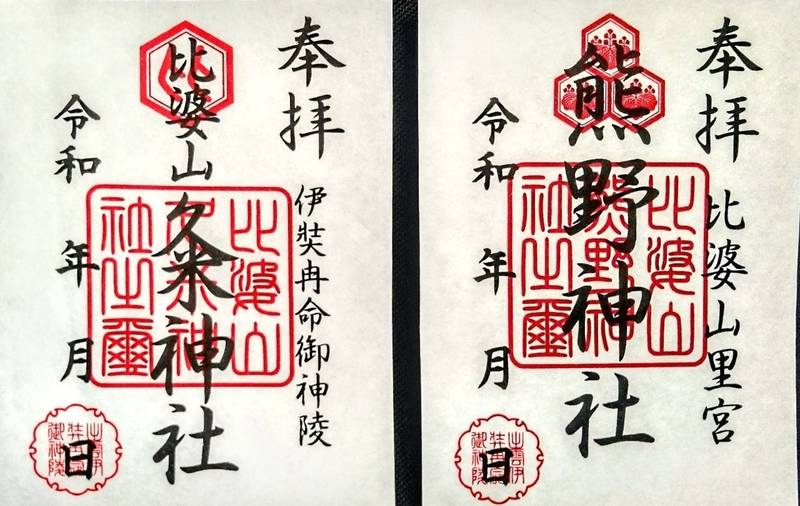 奉拝
伊弉冉命御神陵
比婆山久米神社
比婆山
久米神
社之璽
令和 年 月 日
御神陵
奉拝
比婆山里宮
熊野神社
比婆山
熊野神
社之璽
令和 年 月 日
出雲伊
御神陵